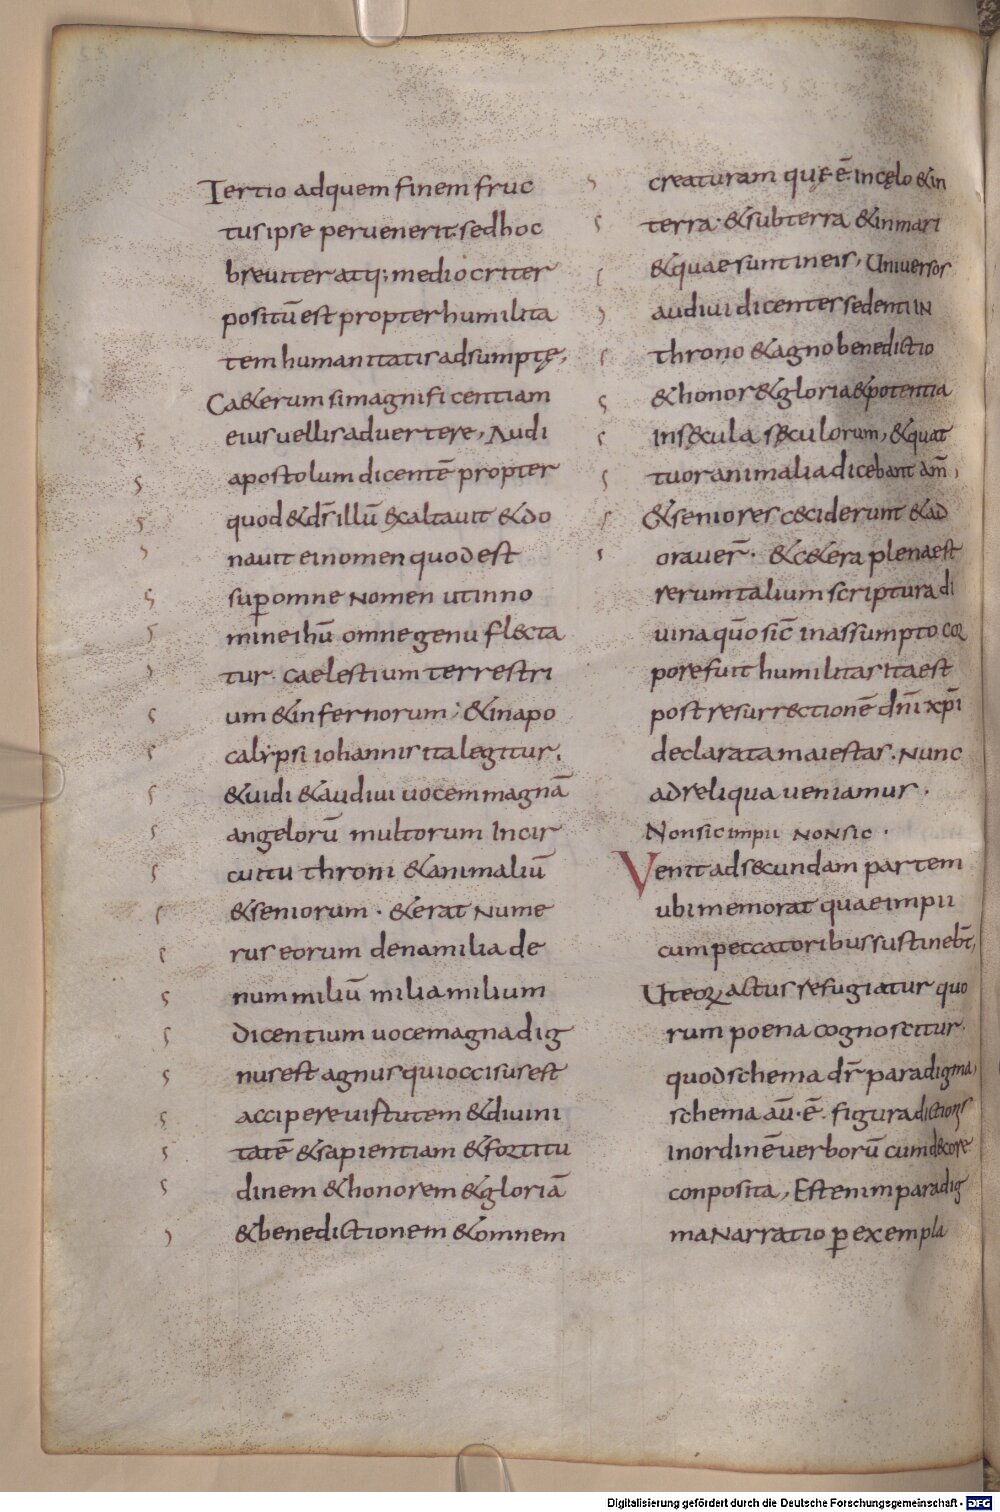 Tertio ad quem finem fruc
tus ipse peruenerit. sed hoc
breuiter atq; mediocriter
positū est propter humilita
tem humanitatis adsumptę,
Caeterum si magnificentiam
eius uellis aduertere, Audi
apostolum dicentē propter
quod & dr̄ illū exaltauit & do
nauit ei nomen quod est
sup omne nomen ut in no
mine ihū omne genu flecta
tur. caelestium terrestri
um & infernorum; & in apo
calypsi iohannis ita legitur.
& uidi & audiui uocem magnā
angelorū multorum In cir
cuitu throni & animaliū
& seniorum. & erat Nume
rus eorum dena milia de
num miliū milia milium
dicentium uoce magna dig
nus est agnus qui occisus est
accipere uirtutem & diuini
tatē & sapientiam & fortitu
dinem & honorem & gloriā
& benedictionem & omnem
creaturam quę ē. in cęlo & in
terra. & sub terra & in mari
& quae sunt in eis, Uniuersos
audiui dicentes sedenti IN
throno & agno benedictio
& honor & gloria & potentia
in sęcula sęculorum, & quat
tuor animalia dicebant am̄,
& seniores ceciderunt & ad
orauer̄. & cetera plena est
rerum talium scriptura di
uina quō sic̄ in assumpto cor
pore fuit humilitas ita est
post resurrectionē dn̄i xp̄i
declarata maiestas. Nunc
ad reliqua ueniamur.
Non sic impii NON SIC.
Venit ad secundam partem
ubi memorat quae impii
cum peccatoribus sustinebt̄,
Ut eoꝝ actus refugiatur quo
rum poena cognoscitur.
quod schema dr̄ paradigma,
schema aū. ē. figura dictionis
in ordinē uerborū cum decore
conposita, Est enim paradig
ma Narratio p exempla
Digitalisierung gefördert durch die Deutsche Forschungsgemeinschaft - DFG